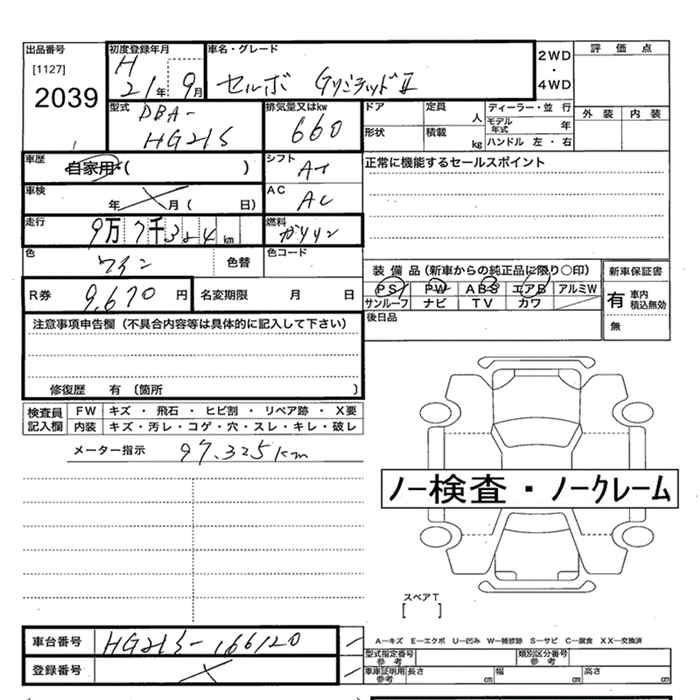 出品番号 初度登録年月 車名・グレード 2WD・4WD 評価点
[1127] H 21年 9月 セルボ Gリミテッド II
2039
型式 DBA- HG21S 排気量又はkw 660 ドア 定員 人 ディーラー・並行 外装 内装
形状 積載 kg モデル年式 年
ハンドル 左・右
車歴 自家用・( ) シフト AT 正常に機能するセールスポイント
車検 年 月 ( 日) AC AC
走行 9万7千3 4 km 燃料 ガソリン
色 ワイン 色替 色コード
装備品(新車からの純正品に限り○印) 新車保証書
R券 9,670 円 名変期限 月 日 PS PW ABS エアB アルミW 有 車内積込無効
サンルーフ ナビ TV カワ 無
注意事項申告欄(不具合内容等は具体的に記入して下さい) 後日品
修復歴 有 〔箇所 〕
検査員記入欄 FW キズ・飛石・ヒビ割・リペア跡・X要
内装 キズ・汚レ・コゲ・穴・スレ・キレ・破レ
メーター指示 97,325km
ノー検査・ノークレーム
スペアT
[ ]
車台番号 HG21S-166120 A-キズ E-エクボ U-凹み W-補修跡 S-サビ C-腐食 XX-交換済
型式指定番号 参考 類別区分番号 参考
登録番号 車庫証明用 参考 長さ cm 幅 cm 高さ cm